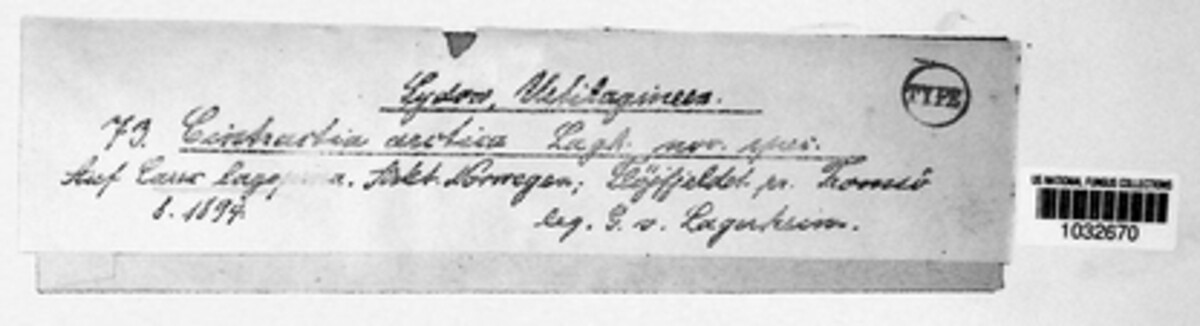 Sydow, Ustilagineen.
TYPE
73. Cintractia arctica Lagh. nov. spec.
Auf Carex lagopina. Arkt. Norwegen; Flöjfjeldet pr. Tromsö
8. 1894. leg. G. v. Lagerheim.
US NATIONAL FUNGUS COLLECTIONS
1032670